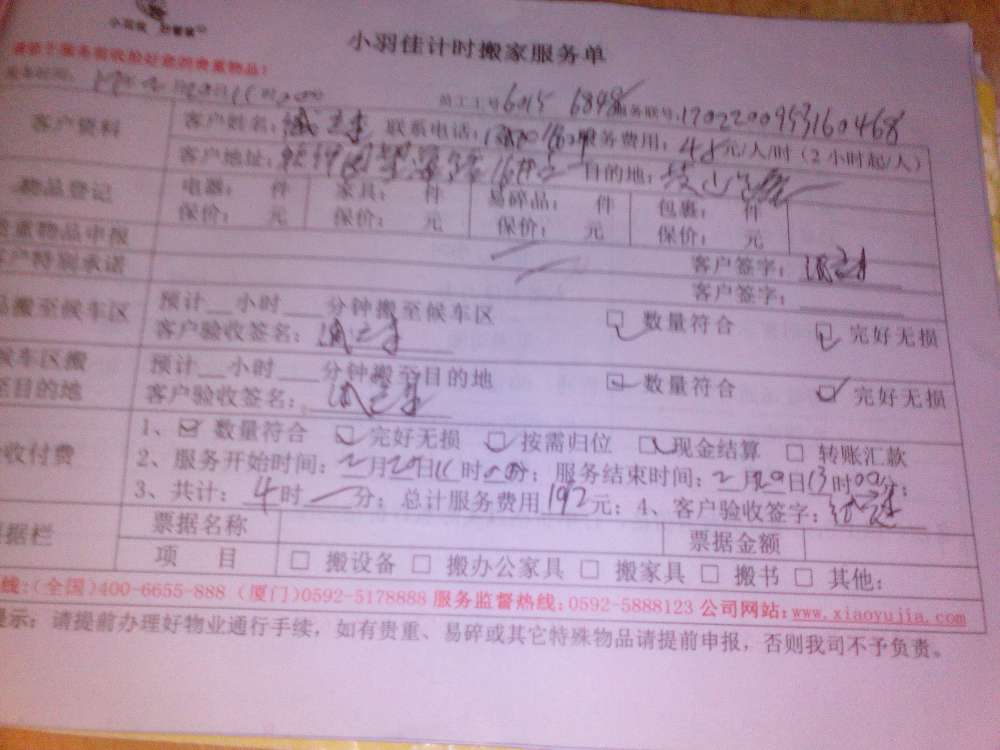 小羽佳计时搬家服务单
员工工号 6015 6898 服务联号:1702200953160468
客户资料 客户姓名: 联系电话: 服务费用:48元/人/时(2小时起/人)
客户地址: 目的地:
物品登记 电器: 件 家具: 件 易碎品: 件 包裹: 件
保价: 元 保价: 元 保价: 元 保价: 元
贵重物品申报 客户签字:
客户特别承诺 客户签字:
品搬至候车区 预计__小时___分钟搬至候车区 数量符合 完好无损
客户验收签名:
候车区搬至目的地 预计__小时___分钟搬至目的地 数量符合 完好无损
客户验收签名:
收付费 1、 数量符合 完好无损 按需归位 现金结算 □ 转账汇款
2、服务开始时间:2月20日11时00分;服务结束时间:2月20日13时00分;
3、共计:4时 分;总计服务费用192元;4、客户验收签字:
票据栏 票据名称 票据金额
项 目 □ 搬设备 □ 搬办公家具 □ 搬家具 □ 搬书 □ 其他:
线:(全国)400-6655-888 (厦门)0592-5178888 服务监督热线:0592-5888123 公司网站:www.xiaoyujia.com
提示:请提前办理好物业通行手续,如有贵重、易碎或其它特殊物品请提前申报,否则我司不予负责。